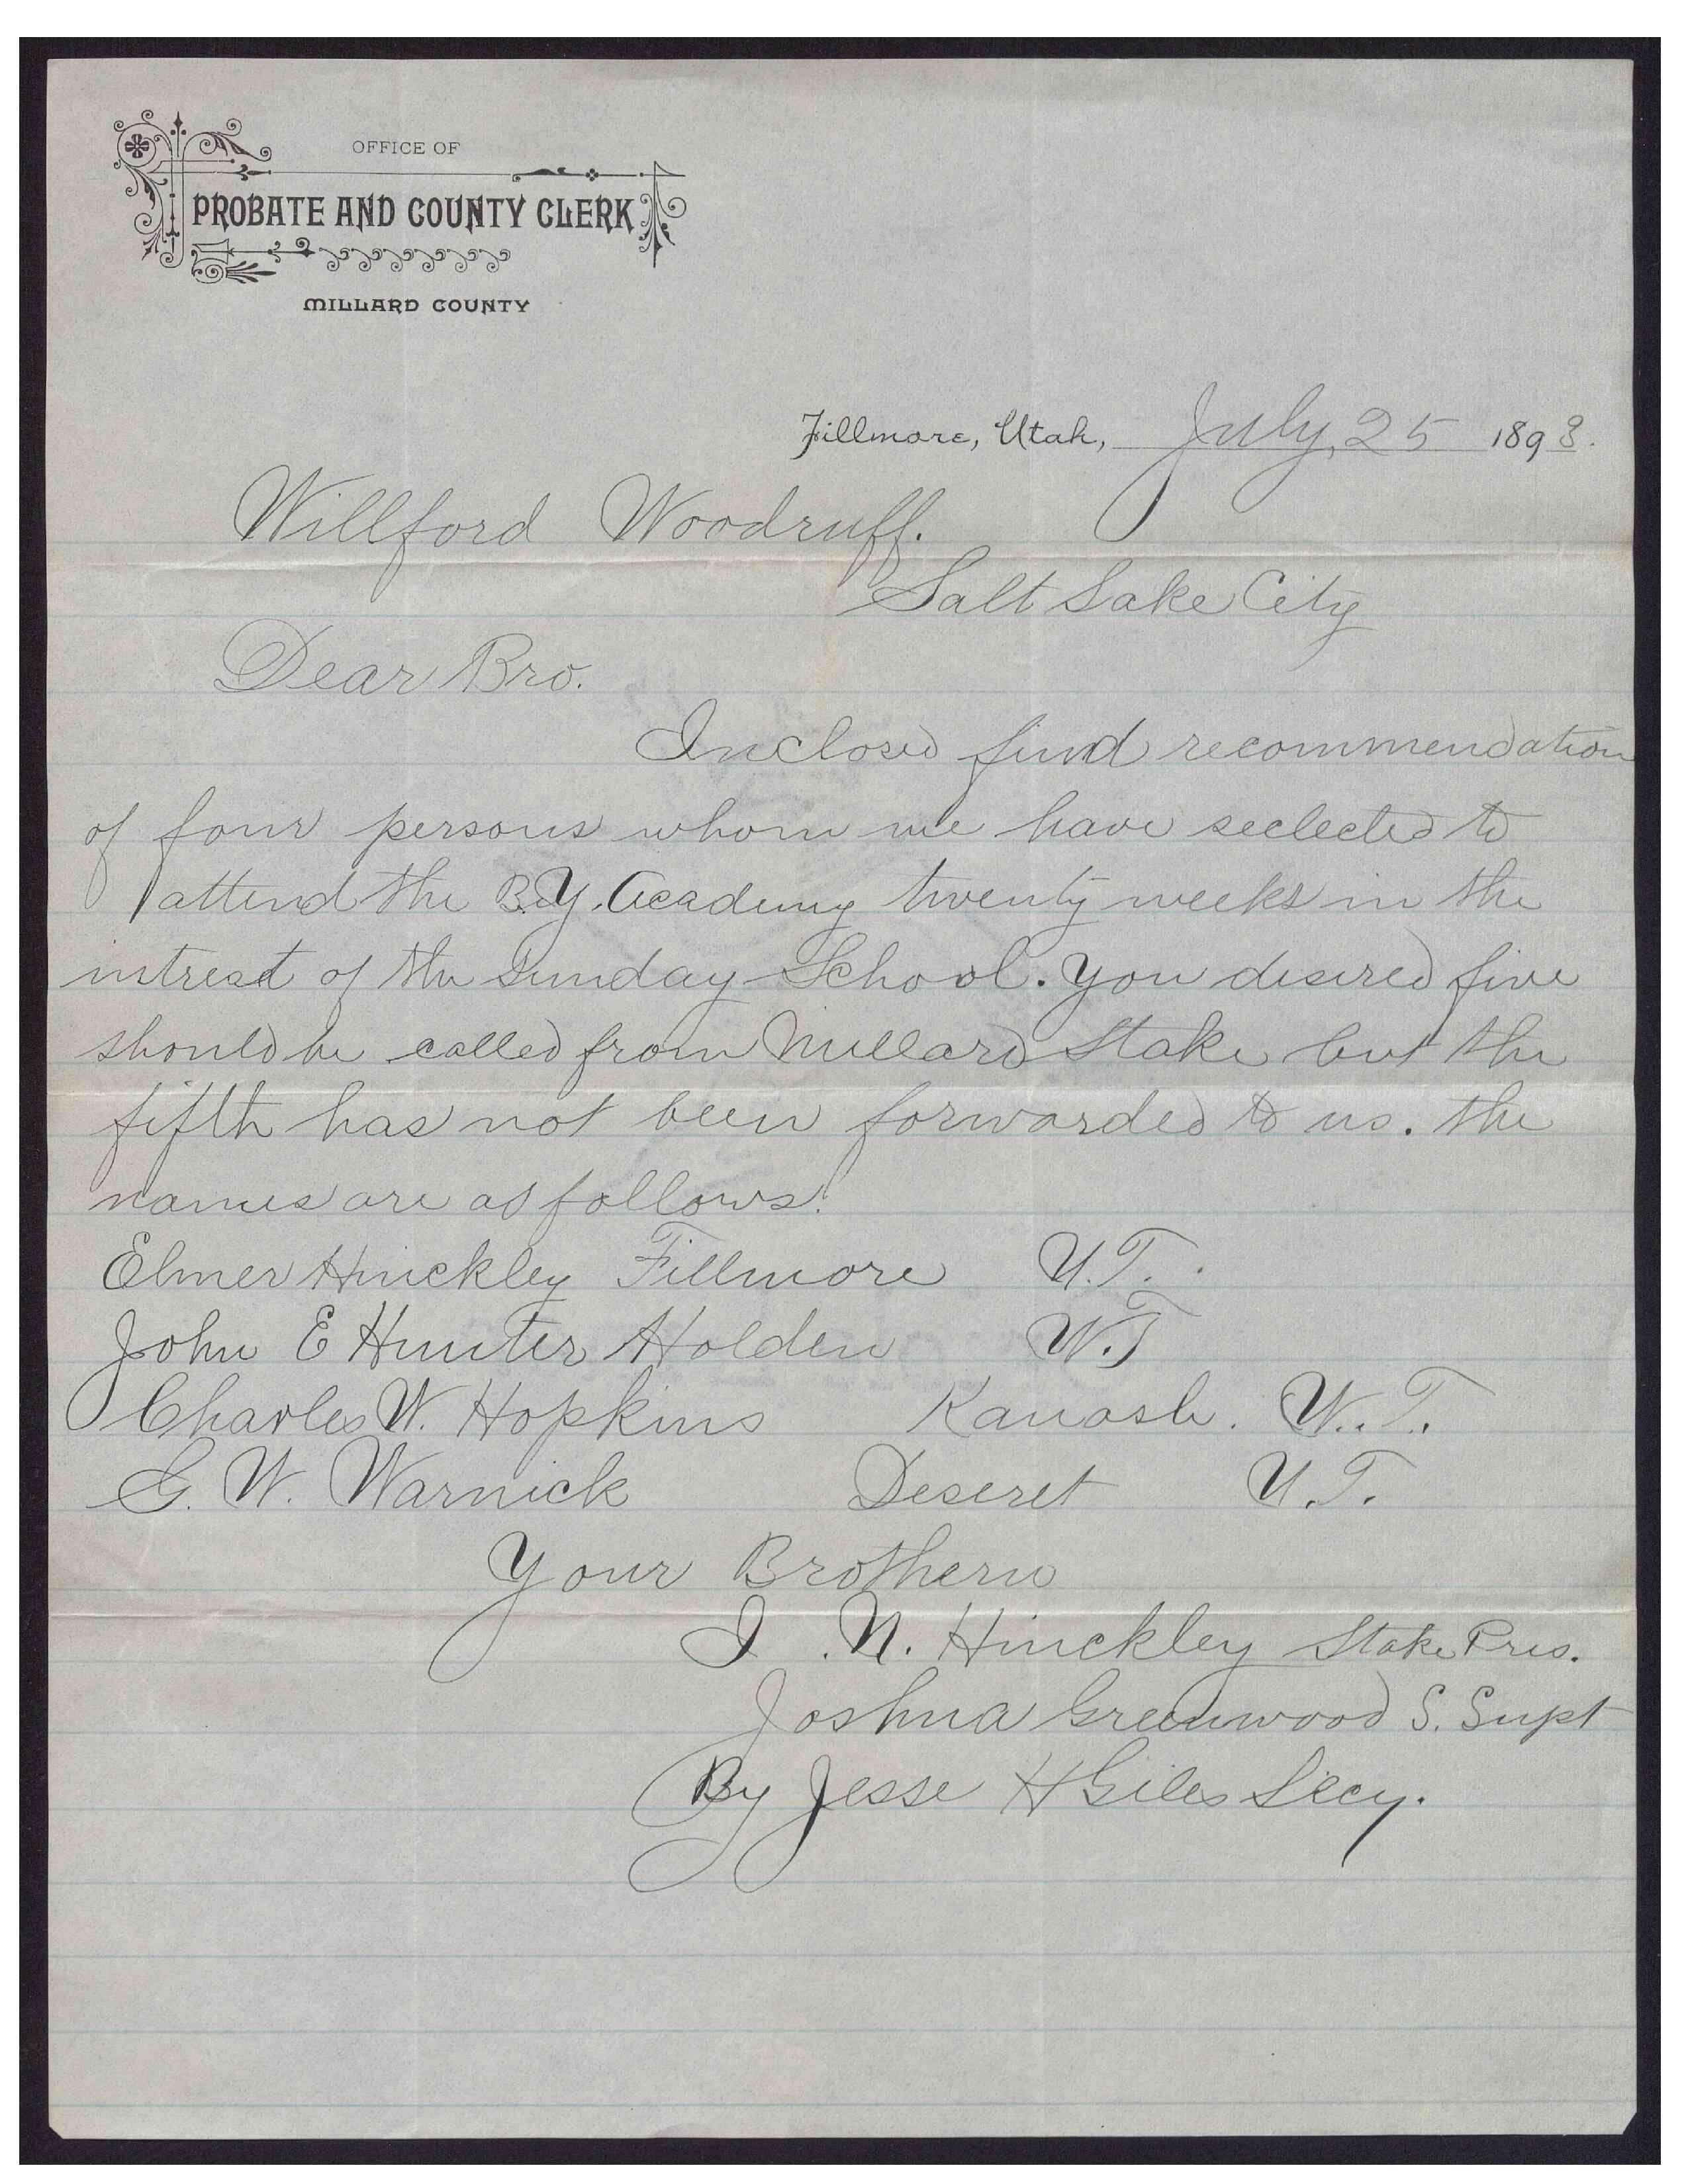 OFFICE OF
PROBATE AND COUNTY CLERK
MILLARD COUNTY
Fillmore, Utah, July, 25 1893.
Willford Woodruff.
Salt Lake City
Dear Bro.
Inclosed find recommendation
of four persons whom we have seclected to
attend the B.Y. Academy twenty weeks in the
intrest of the Sunday School. You desired five
should be called from Millard Stake but the
fifth has not been forwarded to us. the
names are as follows!
Elmer Hinckley Fillmore U.T.
John E Hunter Holden U.T
Charles W. Hopkins Kanosh. U.T.
G. W. Warnick Deseret U.T.
Your Brothern
I. N. Hinckley Stake Pres.
Joshua Greenwood S. Supt
By Jesse H Giles Secy.